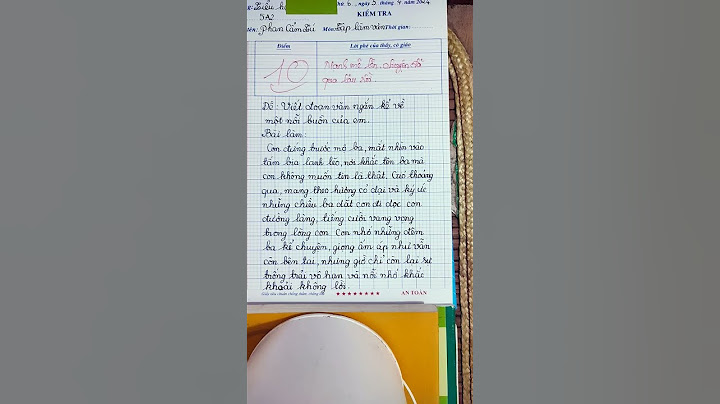 Thứ 6, ngày 5 tháng 4 năm 2024
KIỂM TRA
5A2
tên: Phan Cẩm Tú Môn: Tập làm văn Thời gian:
Điểm Lời phê của thầy, cô giáo
10 Mạnh mẽ lên. chuyện đã
qua lâu rồi.
Đề: Viết đoạn văn ngắn kể về
một nỗi buồn của em.
Bài làm:
Con đứng trước mộ ba, mắt nhìn vào
tấm bia lạnh lẽo, nơi khắc tên ba mà
con không muốn tin là thật. Gió thoảng
qua, mang theo hương cỏ dại và ký ức
những chiều ba dắt con đi dọc con
đường làng, tiếng cười vang vọng
trong lòng con. Con nhớ những đêm
ba kể chuyện, giọng ấm áp như vẫn
còn bên tai, nhưng giờ chỉ còn lại sự
trống trải vô hạn và nỗi nhớ khắc
khoải không lời
AN TOÀN